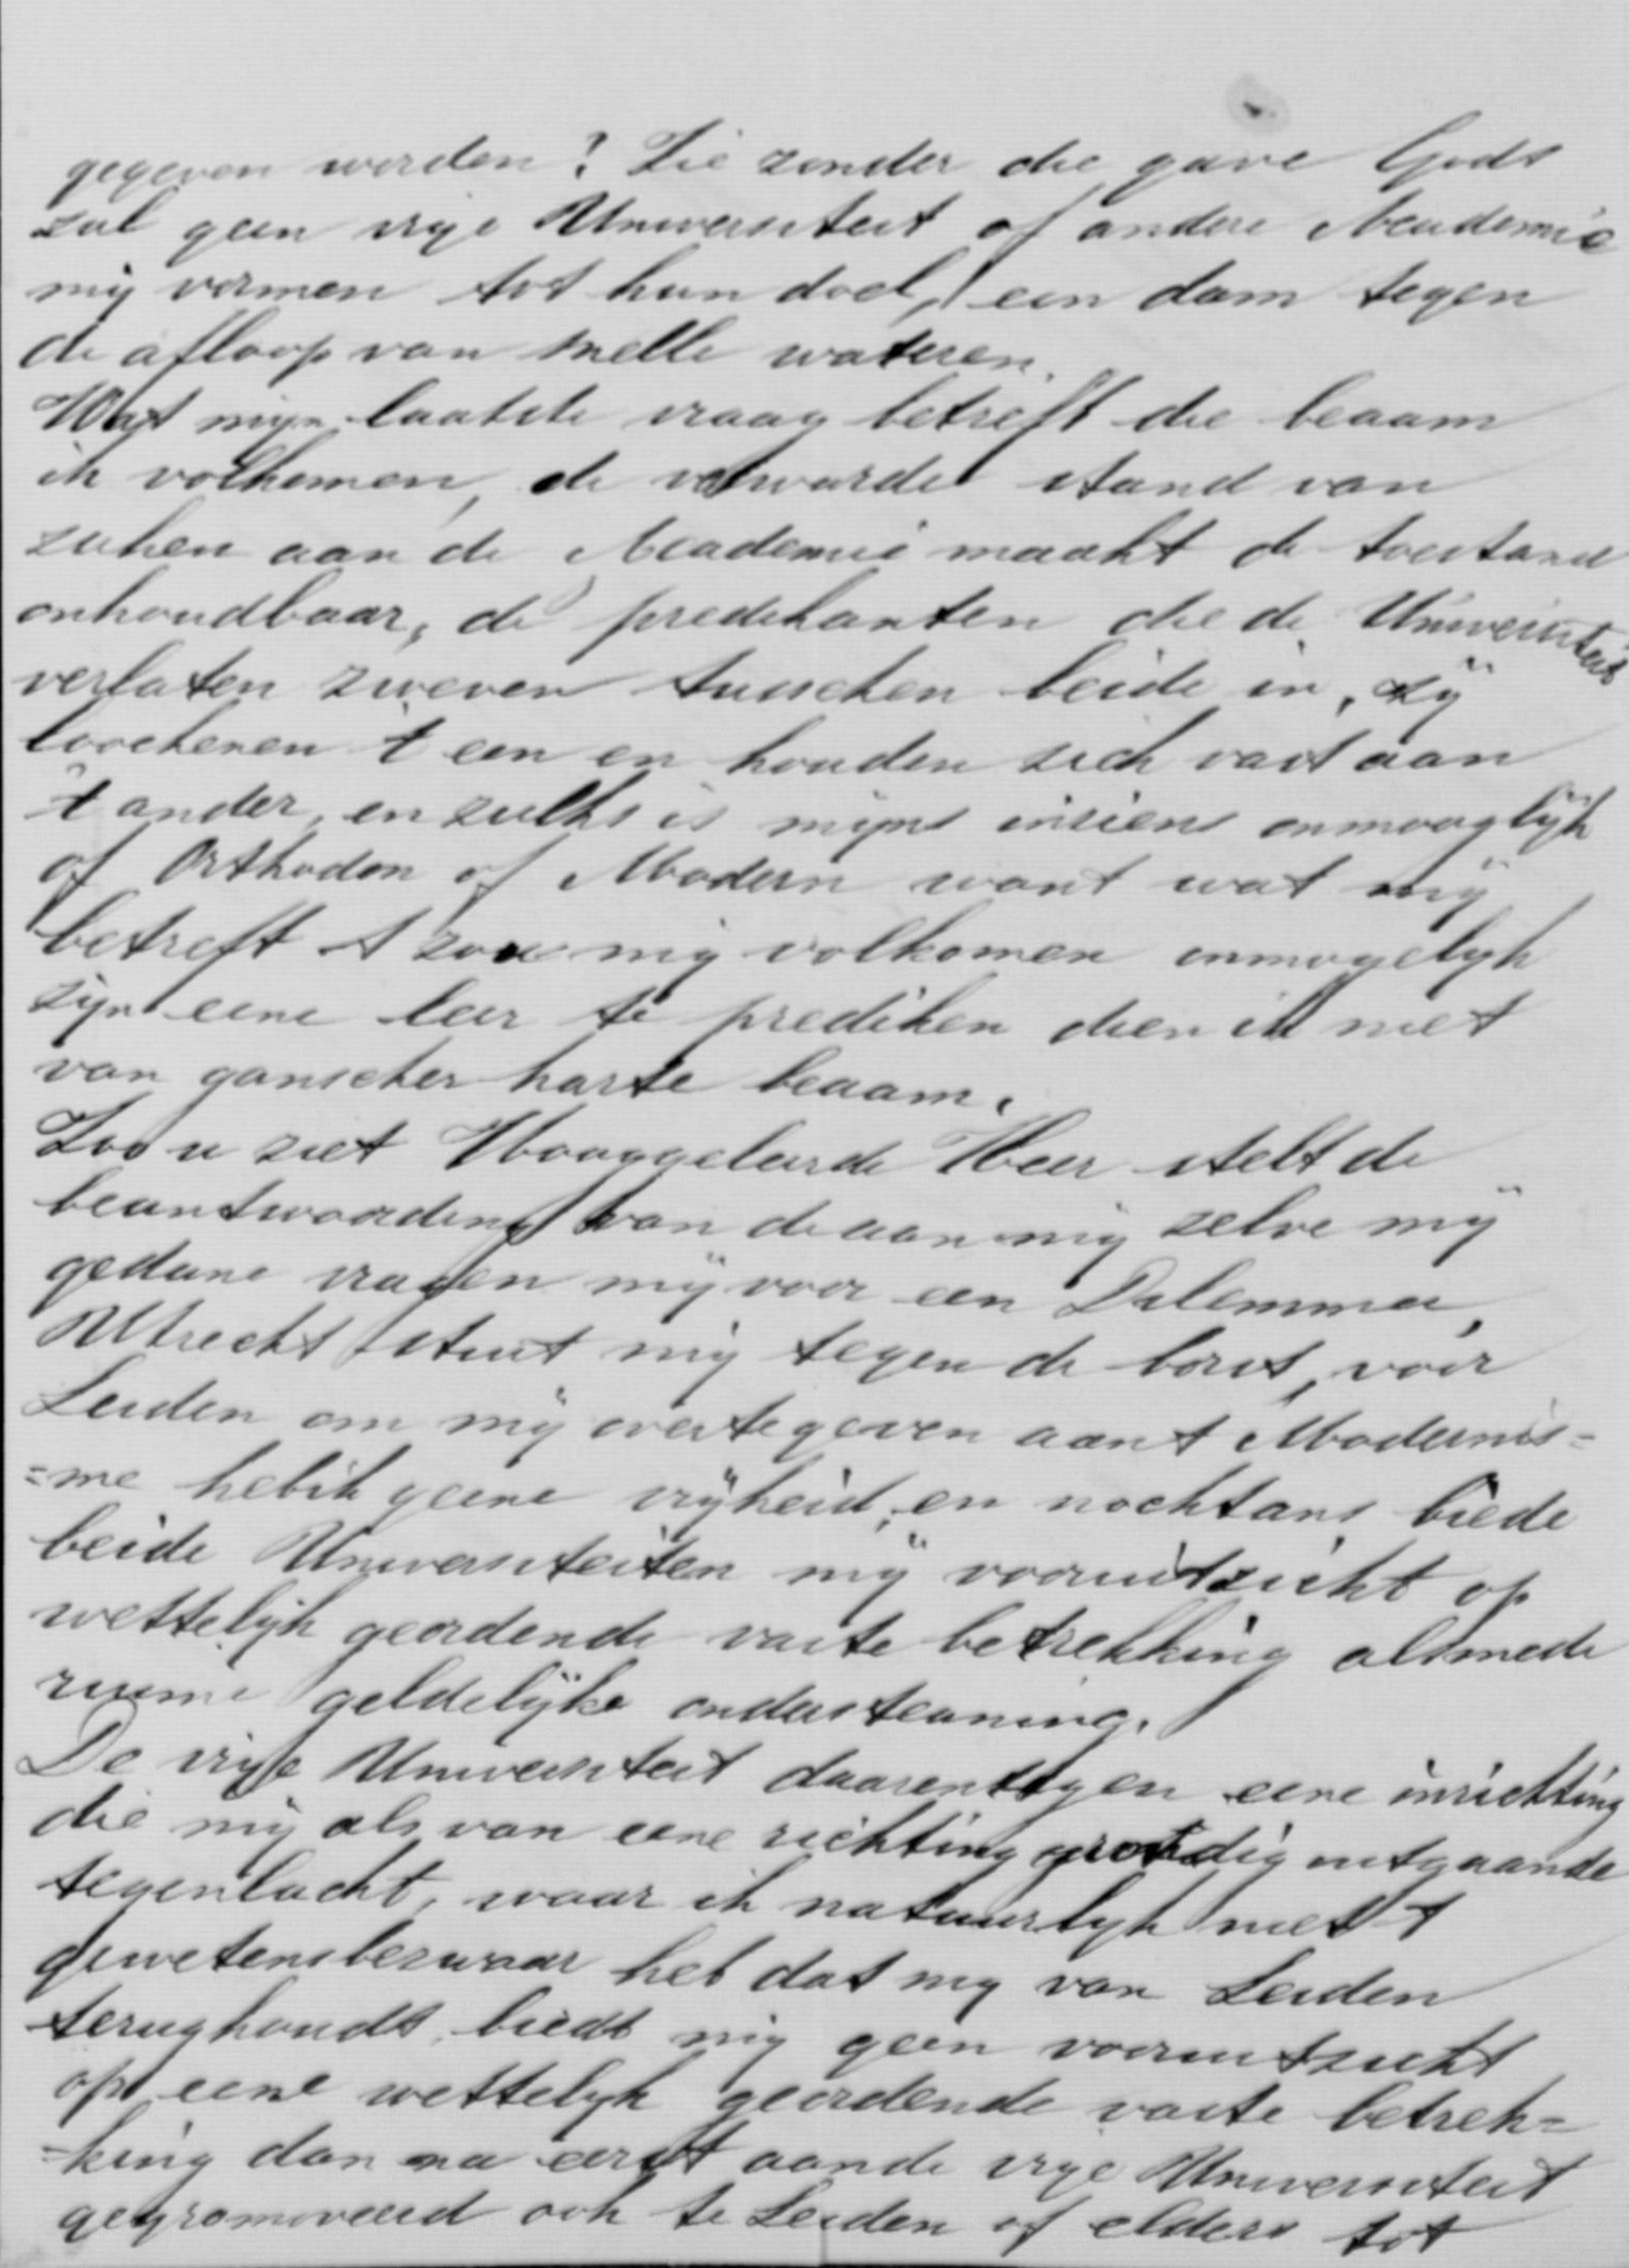 gegeven worden? Zie zonder die gave Gods
zal geen vrije Universiteit of andere Academie
mij vormen tot hun doel, een dam tegen
de afloop van snelle wateren.
Wat mijn laatste vraag betreft die beaam
ik volkomen, de verwarde stand van
zaken aan de Academie maakt de toestand
onhoudbaar, de predikanten die de Universiteit
verlaten zweven tusschen beide in, zij
loochenen 't een en houden zich vast aan
't ander, en zulks is mijns inziens onmooglijk
of Orthodox of Modern want wat mij
betreft 't zou mij volkomen onmogelijk
zijn eene leer te prediken dien ik niet
van ganscher harte beaam.
Zoo u ziet Hooggeleerde Heer stelt de
beantwoording van de aan mij zelve mij
gedane vragen mij voor een Dilemma,
Utrecht stuit mij tegen de borst, voor
Leiden om mij overtegeven aan 't Modernis=
=me heb ik geene vrijheid, en nochtans biede
beide Universiteiten mij vooruitzicht op
wettelijk geordende vaste betrekking alsmede
ruime geldelijke ondersteuning.
De vrije Universiteit daarentegen eene inrichting
die mij als van eene richting uitgaande
tegenlacht, waar ik natuurlijk niet 't
gewetensbezwaar heb dat mij van Leiden
terughoudt, biedt mij geen vooruitzicht
op eene wettelijk geordende vaste betrek=
=king dan na eerst aan de vrije Universiteit
gepromoveerd ook te Leiden of elders tot